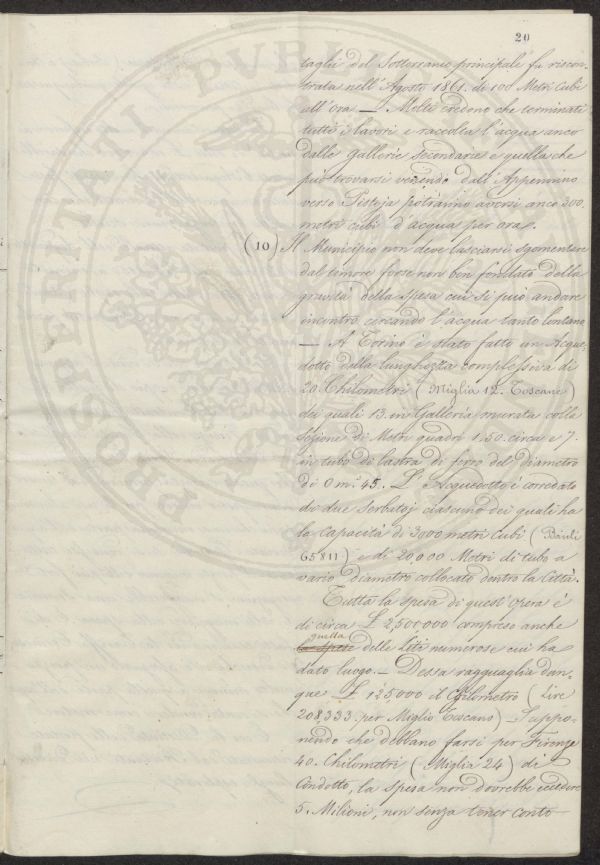 20
taglie del Sotterraneo principale fu riscon-
trata nell'Agosto 1861. di 100 Metri Cubi
all'ora — Molti credono che terminati
tutti i lavori e raccolta l'acqua anco
dalle Gallerie secondarie e quella che
può trovarsi venendo dall'Appennino
verso Pistoja potranno aversi anco 200.
metri cubi d'acqua per ora.
(10) Il Municipio non deve lasciarsi sgomentare
dal timore forse non ben fondato della
gravità della spesa cui si può andare
incontro cercando l'acqua tanto lontano
— A Torino è stato fatto un Acque-
dotto della lunghezza complessiva di
20. Chilometri (Miglia 12. Toscane)
dei quali 13. in Galleria murata colla
Sezione di Metri quadri 1.50. circa e 7.
in tubo di lastra di ferro del diametro
di 0m.45. L'Acquedotto è corredato
da due Serbatoj ciascuno dei quali ha
la Capacità di 3000 metri Cubi (Barili
65811) e di 20,000 Metri di tubo a
vario diametro collocato dentro la Città.
Tutta la spesa di quest'opera è
di circa £ 2,500,000 compreso anche
quella
la spese delle Liti numerose cui ha
dato luogo. — Dessa ragguaglia dun-
que £ 125,000 il Chilometro (Lire
208,333. per Miglio Toscano) — Suppo-
nendo che debbano farsi per Firenze
40. Chilometri (Miglia 24) di
Condotto, la spesa non dovrebbe eccedere
5. Milioni, non senza tener conto
PROSPERITATI PVBLI